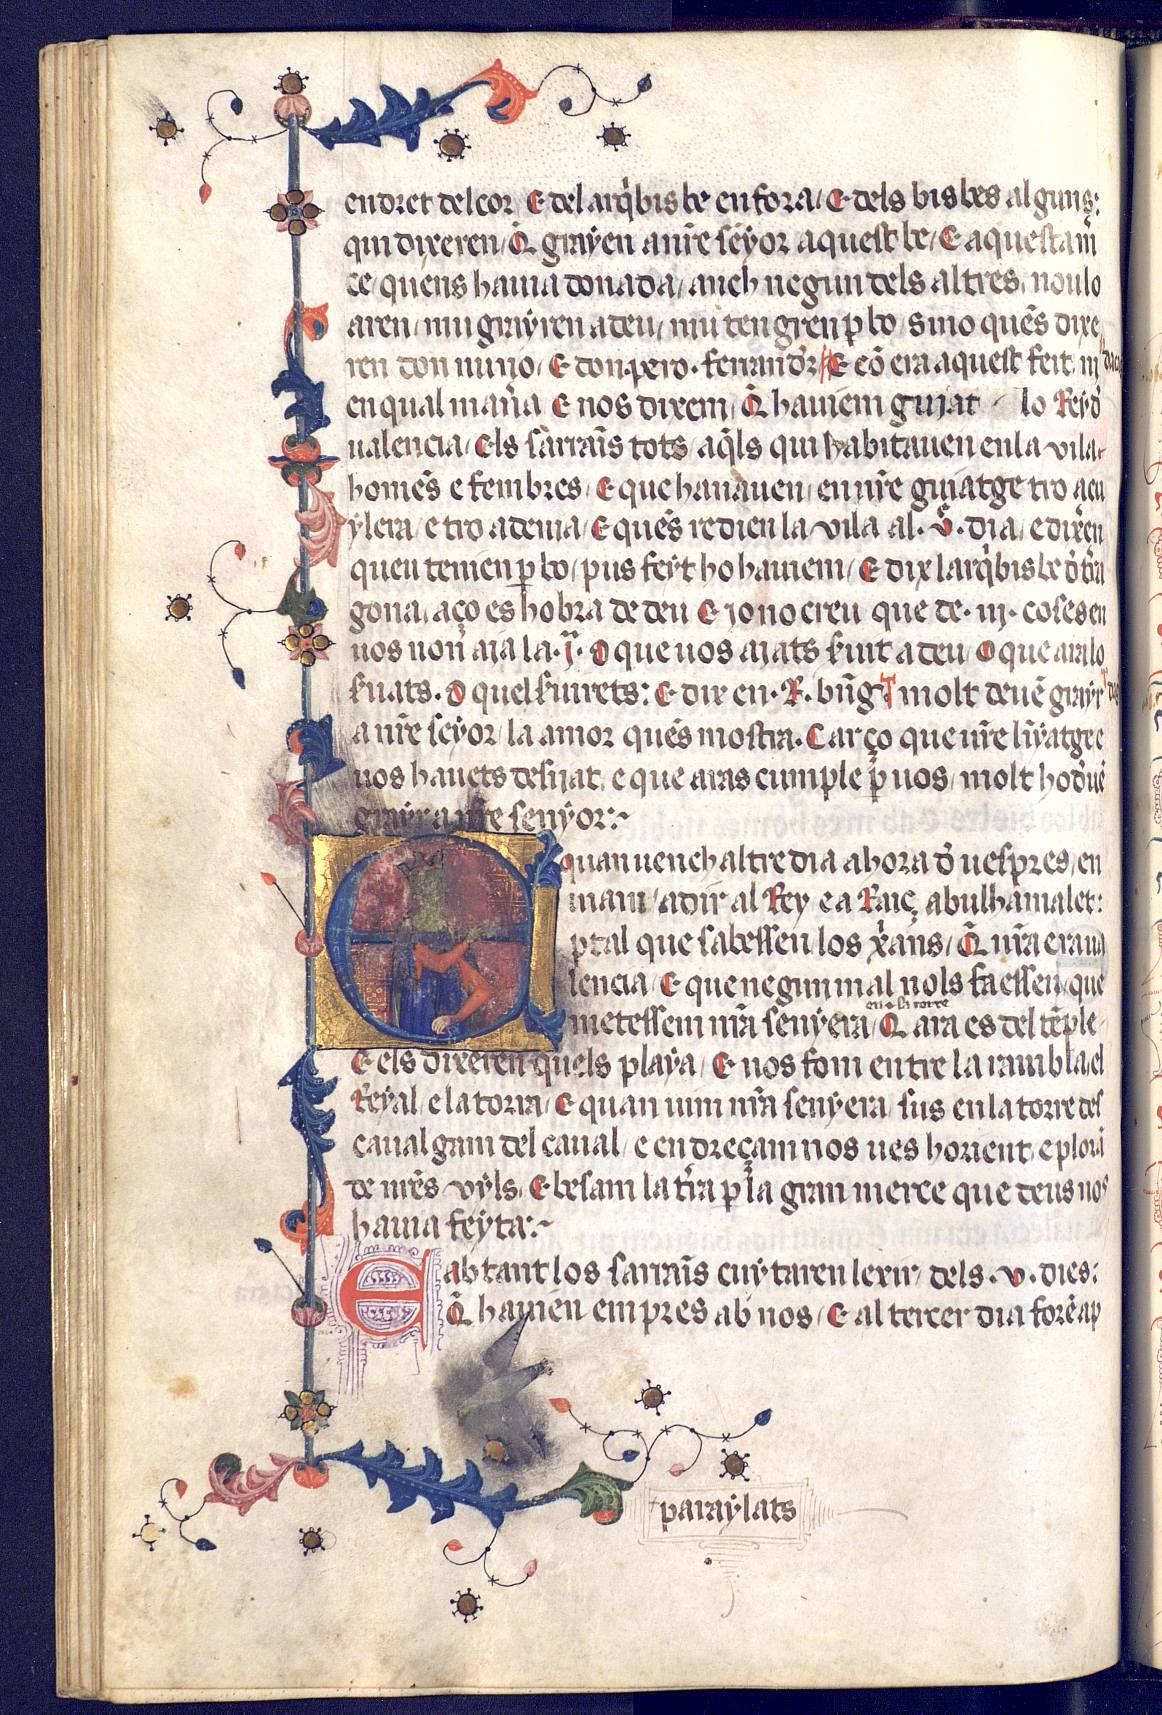 endret del cor E del arq̄bisbe en fora / E dels bisbes alguns:
qui dixeren / Q̄ grayen a nr̄e seyor aquest be / E aquesta m̄
ce / quens hauia donada / anch negun dels altres, no u lo
aren / ni u grayren a deu / ni u tengren ꝑ bo / sino ques̄ dixe
ren don nuno / E don pero · ferrand'z E cō era aquest feit, ni
en qual man̄a E nos dixem / Q̄ hauiem guiat lo Rey d'
ualencia / Els sarrains̄ tots / aq̄ls qui habitauen en la vila
homēs e fembres / E que hauauen / en nr̄e guiatge tro a cu
ylera / e tro a denia / E ques̄ redien la vila al · v̄ · dia / e dixē̄n
que u tenien ꝑ bo / pus feyt ho hauiem / E dix larq̄bisbe d' t'ra
gona, aço es hobra de deu E jo no creu que de · iij · coses en
uos non aia la · j̄ · O que uos aiats ſuit a deu O que ara lo
ſuats · O quel ſuirets: E dix en · R · bn̄g̃ molt deuē grayr
a nr̄e seyor / la amor ques̄ mostra · Car ço que nr̄e linyatge e
uos hauets desijat, e que aras cumple ꝑ uos / molt ho d'uē
grayr a nr̄e senyor:~
E quan uench altre dia a hora d' uespres, en
uiam a dir al Rey e a Raiç abulhamalet:
ꝑ tal que sabessen los x̄ans / Q̄ nr̄a era ua
lencia / E que negun mal nols faessen / que
metessem nr̄a senyera / en · la torre Q ara es del tēple
E els dixeren quels playa / E nos fom entre la rambla, el
Reyal, e la torra / E quan uim nr̄a senyera sus en la torre des
caualgam del caual / e endreçam nos ues horient, e plora
de nr̄es vyls, E besam la t'ra ꝑ la gran merce que deus nos
hauia feyta:~
E ab tant los sarrains̄ cuytaren lexir dels · v · dies:
Q̄ hauien empres ab nos / E al tercer dia forē ap
paraylats